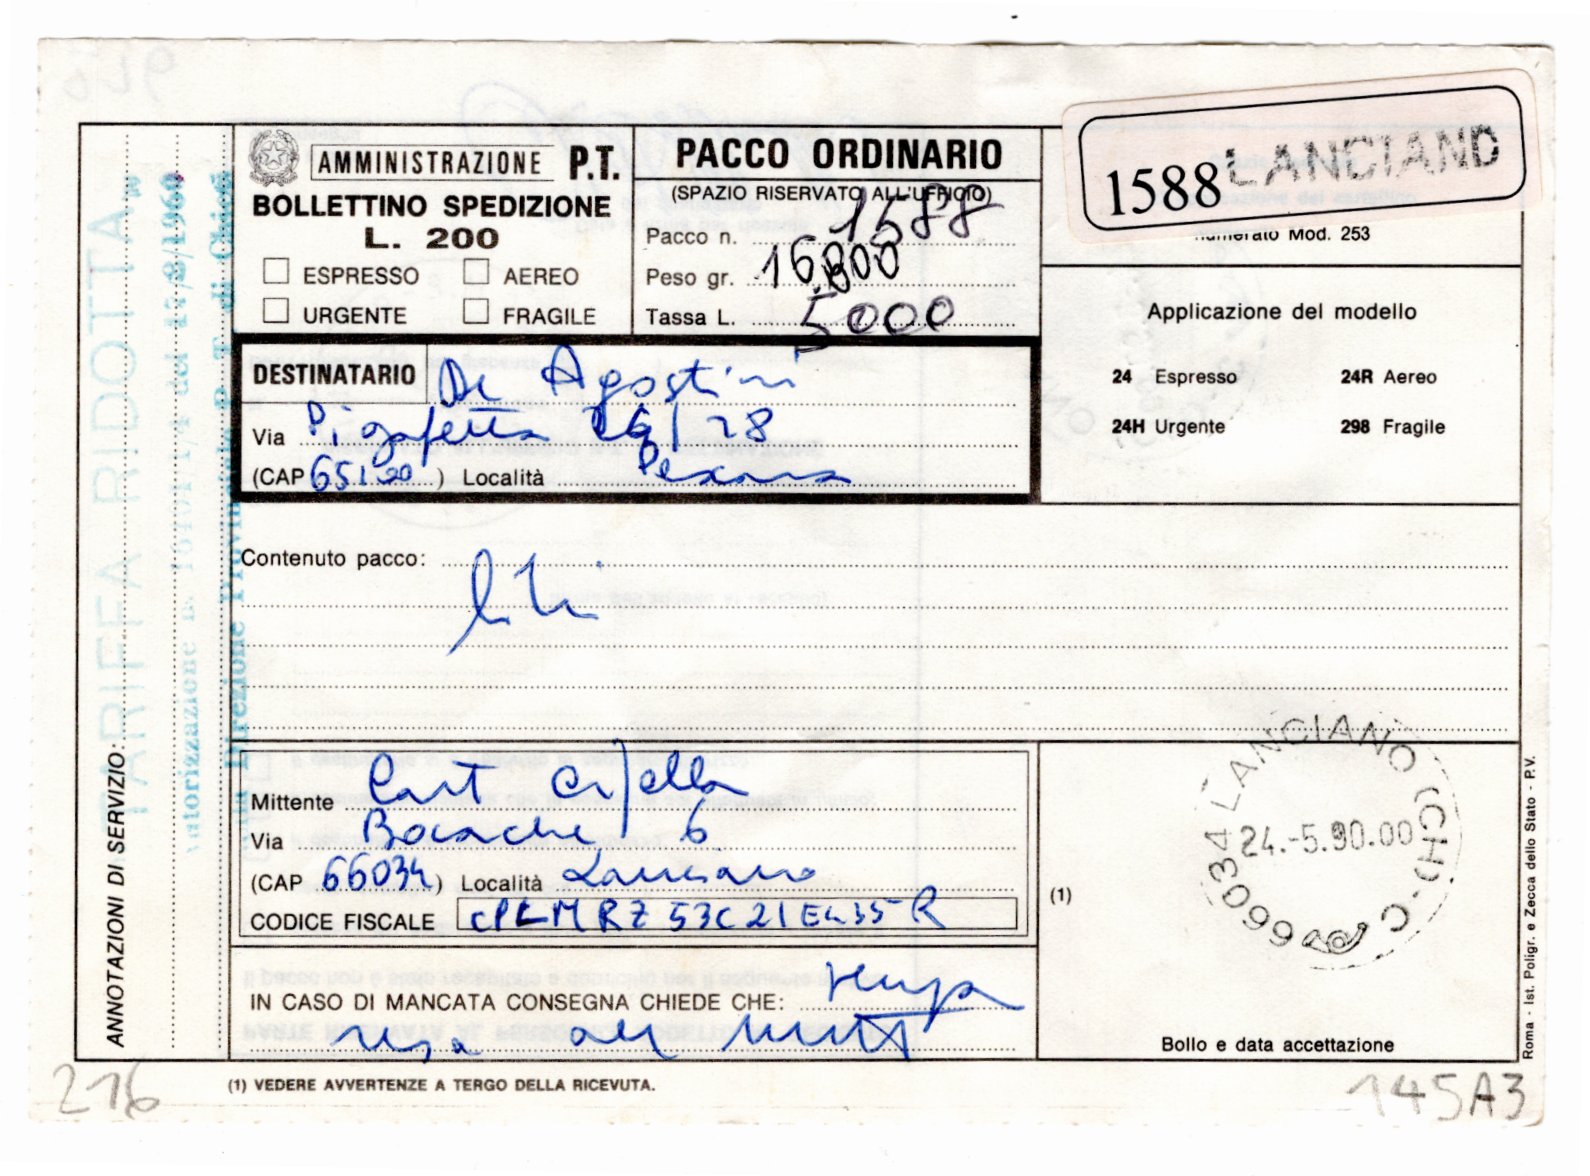 AMMINISTRAZIONE P.T.
BOLLETTINO SPEDIZIONE
L. 200
ESPRESSO AEREO
URGENTE FRAGILE
PACCO ORDINARIO
(SPAZIO RISERVATO ALL'UFFICIO)
Pacco n. 1588
Peso gr. 16800
Tassa L. 5000
1588 LANCIANO
numerato Mod. 253
Applicazione del modello
24 Espresso 24R Aereo
24H Urgente 298 Fragile
DESTINATARIO De Agostini
Via Pigafetta 26/28
(CAP 65120) Località Pescara
Contenuto pacco:
libri
Mittente Cart
Via 6
(CAP 66034) Località Lanciano
CODICE FISCALE CPLMRZ53C21E435R
IN CASO DI MANCATA CONSEGNA CHIEDE CHE: venga
resa al mitt
(1)
66034 LANCIANO (CH) - C
24.-5.90.00
Bollo e data accettazione
(1) VEDERE AVVERTENZE A TERGO DELLA RICEVUTA.
Roma - Ist. Poligr. e Zecca dello Stato - P.V.
ANNOTAZIONI DI SERVIZIO:
TARIFFA RIDOTTA
del 13/8/1960
Direzione Provinciale P T di Chieti
216
145A3